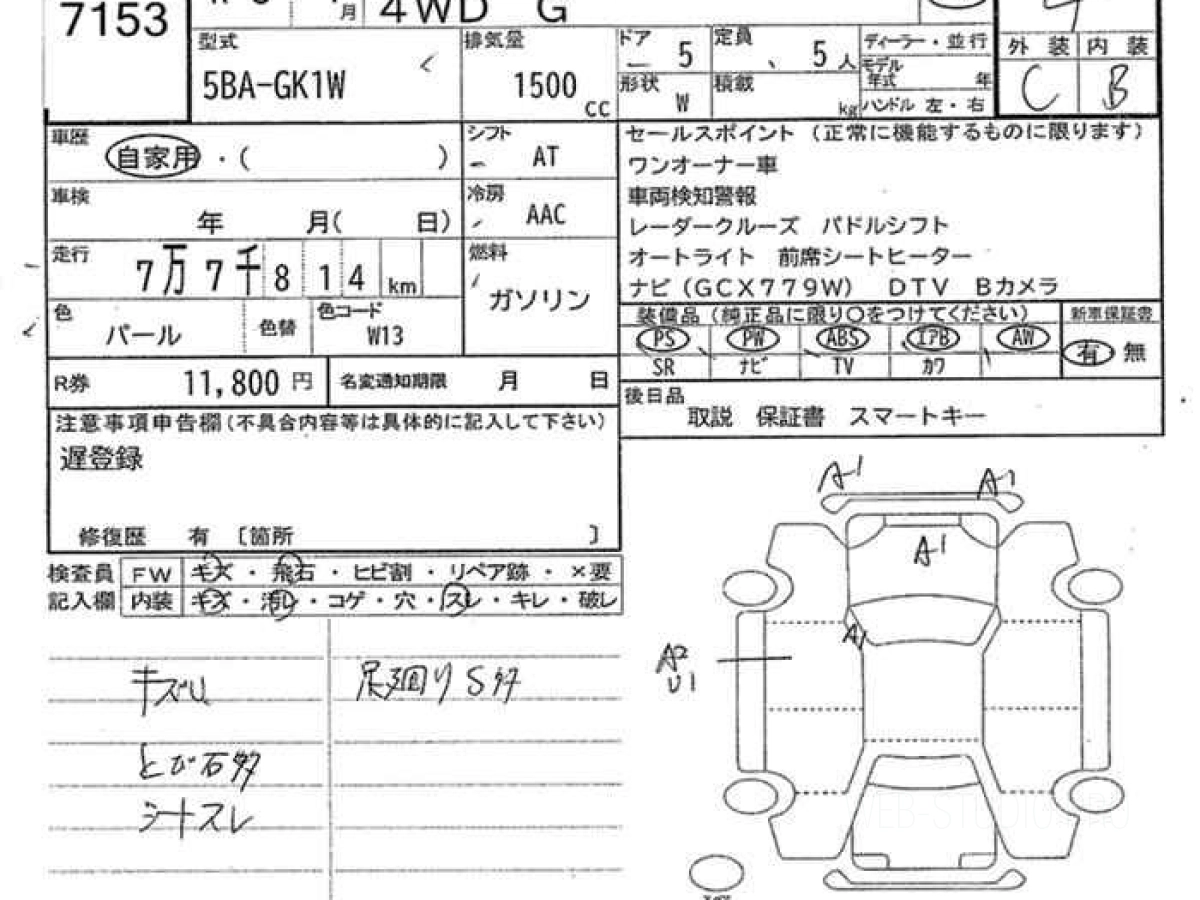 7153
月
4WD G
型式
5BA-GK1W
排気量
1500
cc
ドア
5
定員
5 人
形状
W
積載
kg
ディーラー・並行
モデル
年式
年
ハンドル 左・右
外装 内装
C B
車歴
自家用・( )
シフト
AT
車検
年 月( 日)
冷房
AAC
走行
7万7千814km
燃料
ガソリン
色
パール
色替
色コード
W13
R券
11,800 円
名変通知期限 月 日
セールスポイント (正常に機能するものに限ります)
ワンオーナー車
車両検知警報
レーダークルーズ パドルシフト
オートライト 前席シートヒーター
ナビ(GCX779W) DTV Bカメラ
装備品(純正品に限り〇をつけてください)
新車保証書
PS PW ABS エアB AW
SR ナビ TV カワ
有 無
後日品
取説 保証書 スマートキー
注意事項申告欄(不具合内容等は具体的に記入して下さい)
遅登録
修復歴 有 〔箇所 〕
検査員 FW キズ・飛石・ヒビ割・リペア跡・×要
記入欄 内装 キズ・汚レ・コゲ・穴・スレ・キレ・破レ
キズU
とび石多
シートスレ
足廻りS多
A1
A1
A1
A1
A2
U1